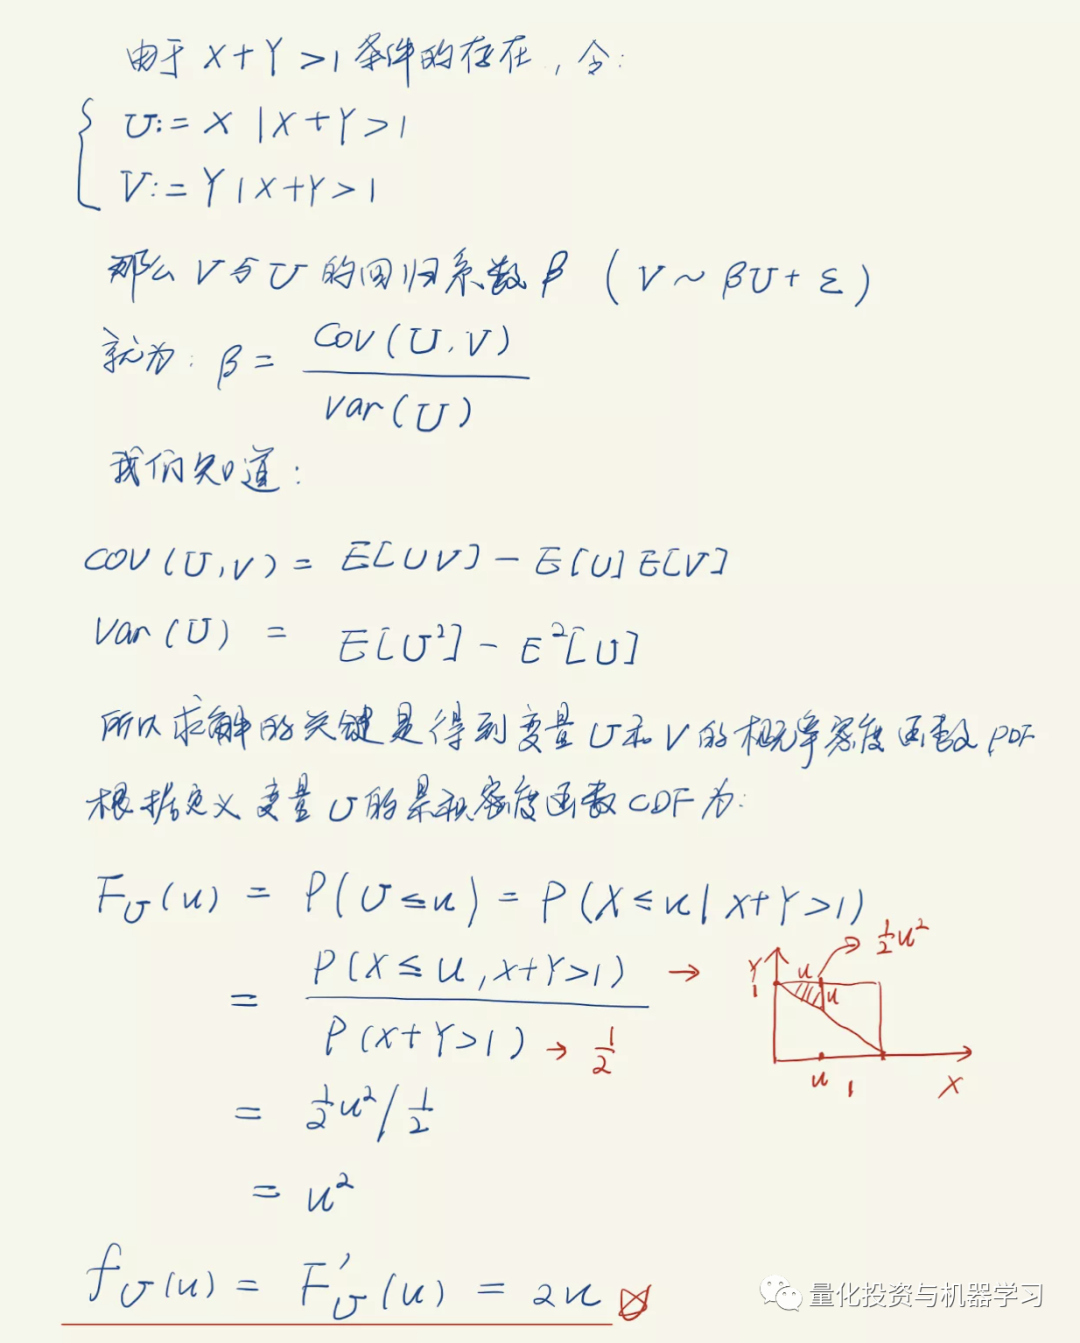 由于 X+Y>1 条件的存在, 令:
U:= X | X+Y>1
V:= Y | X+Y>1
那么 V与U 的回归系数 β ( V ~ βU + ε )
就为: β = Cov(U,V) / Var(U)
我们知道:
COV(U,V) = E[UV] - E[U]E[V]
Var(U) = E[U²] - E²[U]
所以求解的关键是得到变量U和V的概率密度函数PDF
根据定义变量U的累积密度函数CDF为:
F_U(u) = P(U≤u) = P(X≤u | X+Y>1)
= P(X≤u, X+Y>1) / P(X+Y>1) → 1/2
→ 1/2 u²
Y
1
u
u
u
1
X
= 1/2 u² / 1/2
= u²
f_U(u) = F'_U(u) = 2u
量化投资与机器学习